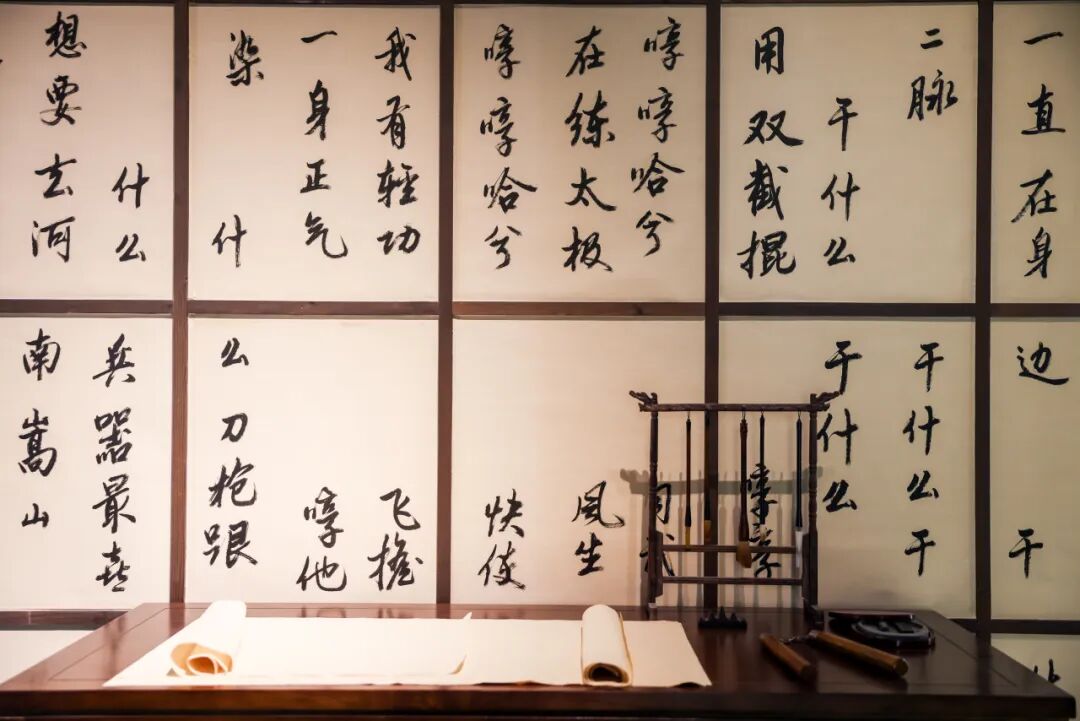 一直在身边干
二脉干什么干
干什么干什么
用双截棍哼哼
哼哼哈兮
在练太极风生
哼哼哈兮快使
我有輕功飞檐
一身正气哼他
染什么刀枪跟
什么兵器最喜
想要去河南嵩山